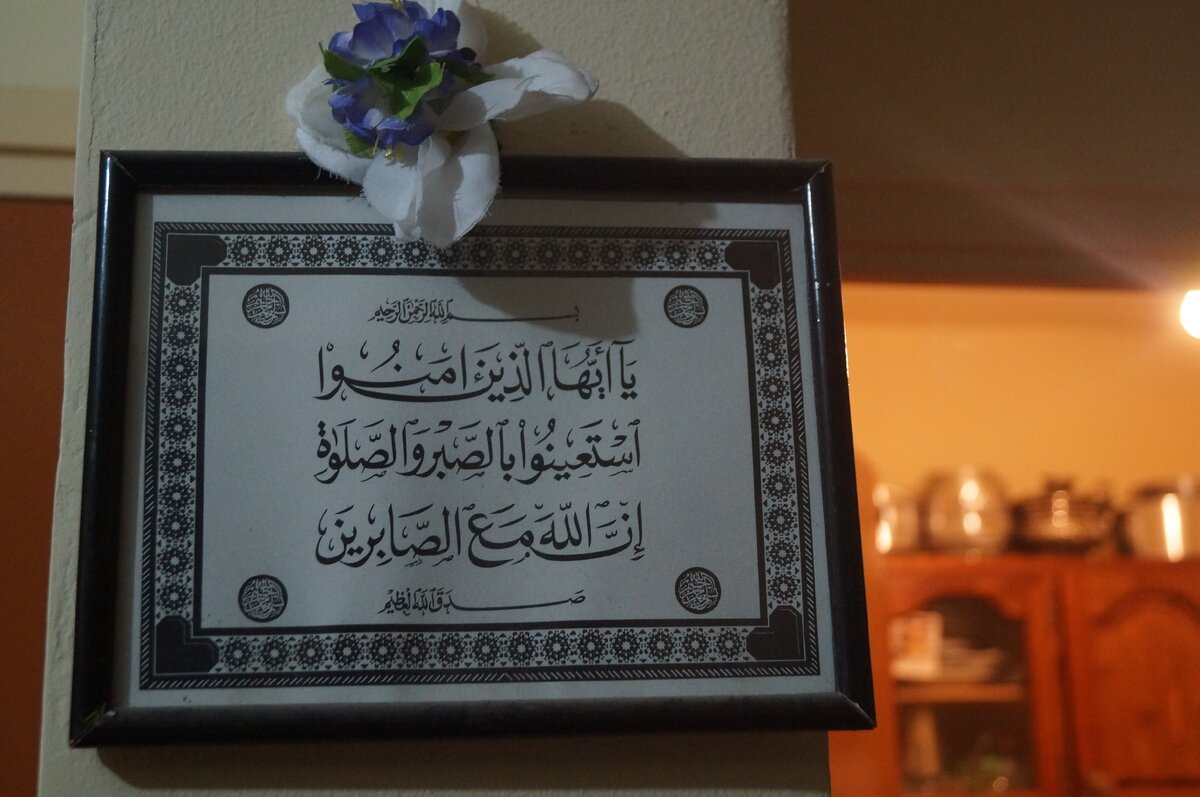 بسم الله الرحمن الرحيم
يَا أَيُّهَا الَّذِينَ اٰمَنُوا
اسْتَعِينُوا بِالصَّبْرِ وَالصَّلَوٰةِ
إِنَّ اللّٰهَ مَعَ الصَّابِرِينَ
صدق الله العظيم